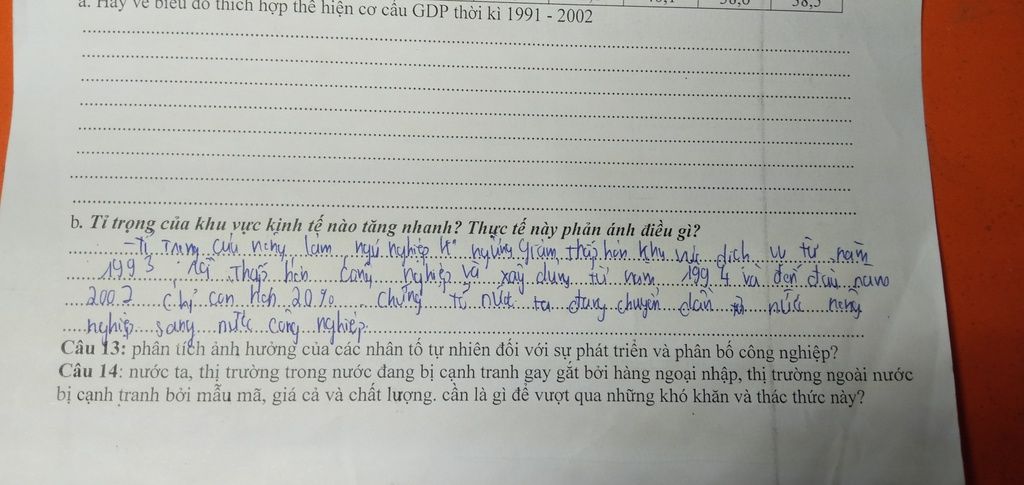 a. Hãy vẽ biểu đồ thích hợp thể hiện cơ cấu GDP thời kì 1991 - 2002
38,5
b. Tỉ trọng của khu vực kinh tế nào tăng nhanh? Thực tế này phản ánh điều gì?
- Tỉ Trọng của nông lâm ngư nghiệp k° ngừng Giảm, thấp hơn khu vực dịch vụ từ năm
1993, rồi Thấp hơn Công nghiệp và xây dựng từ năm 1994 và đến đầu năm
2002 chỉ còn hơn 20% chứng tỏ nước ta đang chuyển dần từ nước nông
nghiệp sang nước công nghiệp
Câu 13: phân tích ảnh hưởng của các nhân tố tự nhiên đối với sự phát triển và phân bố công nghiệp?
Câu 14: nước ta, thị trường trong nước đang bị cạnh tranh gay gắt bởi hàng ngoại nhập, thị trường ngoài nước
bị cạnh tranh bởi mẫu mã, giá cả và chất lượng. cần là gì để vượt qua những khó khăn và thác thức này?